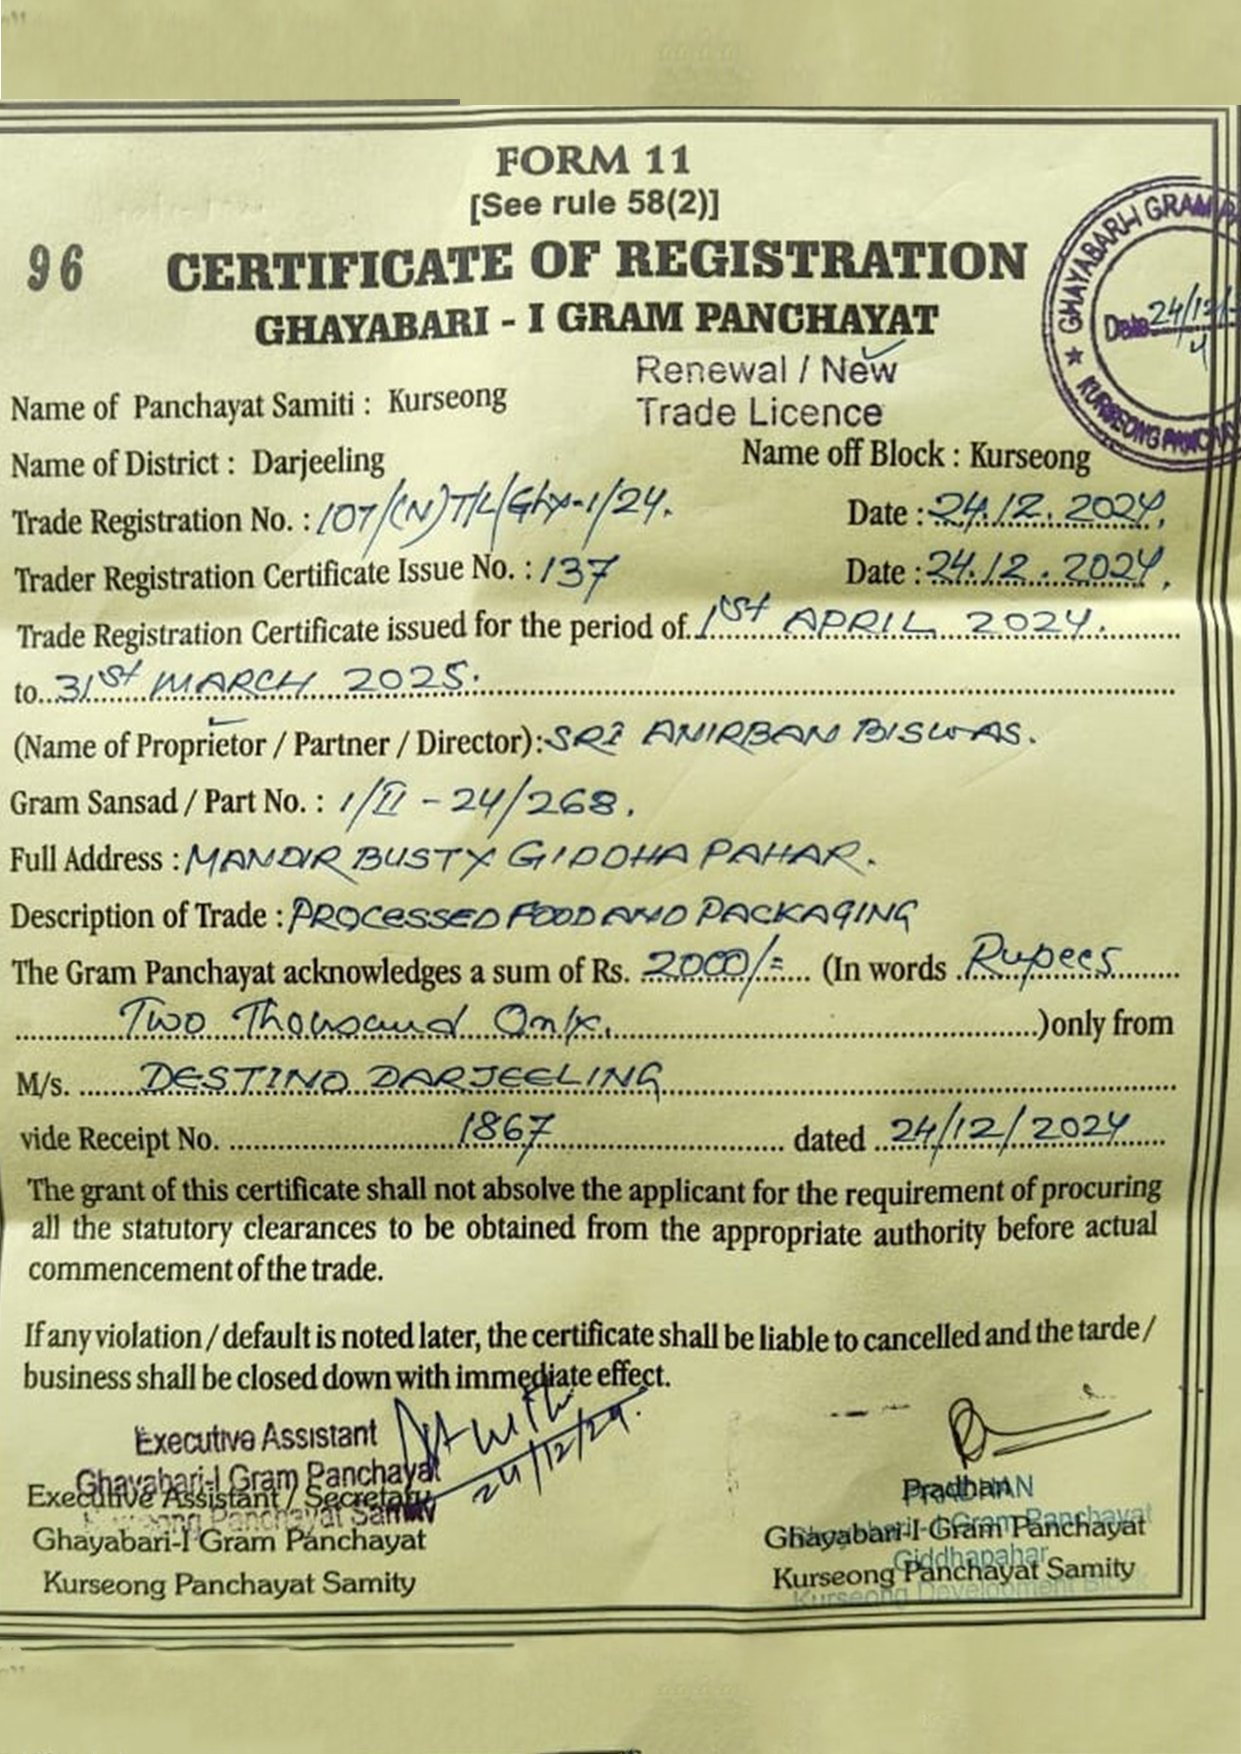 FORM 11
[See rule 58(2)]
96
CERTIFICATE OF REGISTRATION
GHAYABARI - I GRAM PANCHAYAT
GHAYABARI-I GRAM
Date 24/12/
4
KURSEONG
Renewal / New
Trade Licence
Name of Panchayat Samiti : Kurseong
Name of District : Darjeeling Name off Block : Kurseong
Trade Registration No. : 107/(N)T/L/Ghy-1/24. Date : 24.12.2024.
Trader Registration Certificate Issue No. : 137 Date : 24.12.2024.
Trade Registration Certificate issued for the period of 1st APRIL 2024.
to 31st MARCH 2025.
(Name of Proprietor / Partner / Director): SRI ANIRBAN BISWAS.
Gram Sansad / Part No. : 1/II - 24/268.
Full Address : MANDIR BUSTY GIDDHA PAHAR.
Description of Trade : PROCESSED FOOD AND PACKAGING
The Gram Panchayat acknowledges a sum of Rs. 2000/= (In words Rupees
Two Thousand Only. )only from
M/s. DESTINO DARJEELING
vide Receipt No. 1867 dated 24/12/2024
The grant of this certificate shall not absolve the applicant for the requirement of procuring
all the statutory clearances to be obtained from the appropriate authority before actual
commencement of the trade.
If any violation / default is noted later, the certificate shall be liable to cancelled and the tarde /
business shall be closed down with immediate effect.
Executive Assistant
Ghayabari-I Gram Panchayat
Kurseong Panchayat Samity
24/12/24.
Executive Assistant / Secretary
Ghayabari-I Gram Panchayat
Kurseong Panchayat Samity
PRADHAN
Ghayabari-I Gram Panchayat
Giddhapahar
Kurseong Development Block
Pradhan
Ghayabari-I Gram Panchayat
Kurseong Panchayat Samity